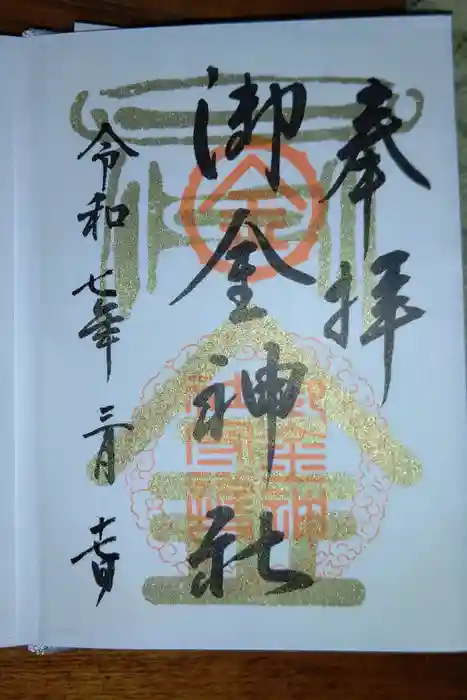 奉拝
御金神社
令和七年 三月 十七日
金